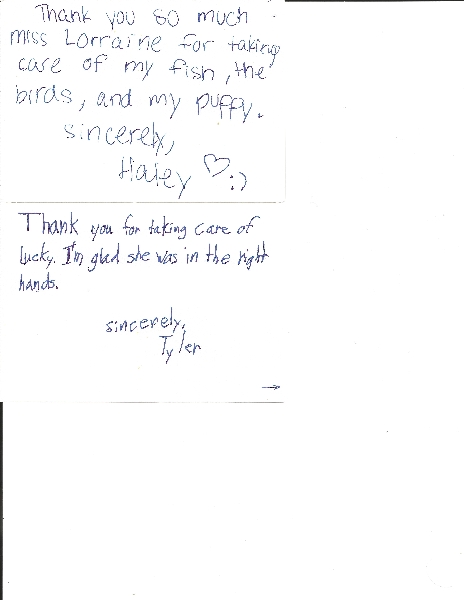 Thank you so much
miss Lorraine for taking
care of my fish, the
birds, and my puffy.
sincerely,
Haley ♡ :)
Thank you for taking care of
lucky. I'm glad she was in the right
hands.
sincerely,
Tyler
→